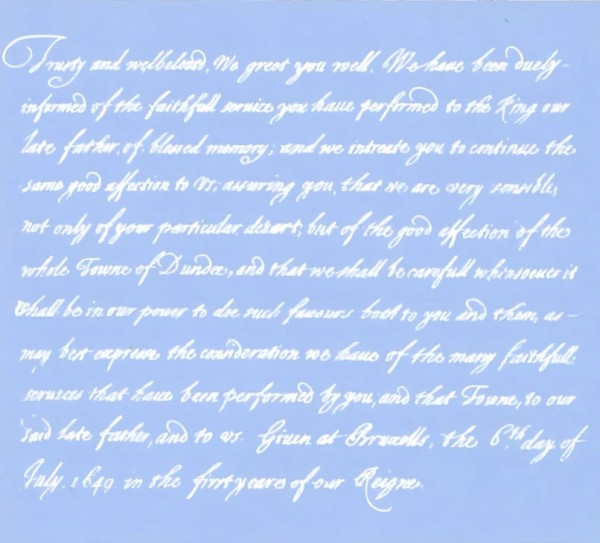 Trusty and welbeloved, We greet you well. We have been duely-
informed of the faithfull service you haue performed to the King our
late father, of blessed memory; and we intreate you to continue the
same good affection to Us; assuring you, that we are very sensible,
not only of your particular desart, but of the good affection of the
whole Towne of Dundee, and that we shall be carefull whensoeuer it
shall be in our power to doe such fauours both to you and them, as -
may best expresse the consideration we haue of the many faithfull
seruices that haue been performed by you, and that Towne, to our
said late father, and to us. Giuen at Bruxells, the 6.th day of
July. 1649. in the first yeare of our Reigne.